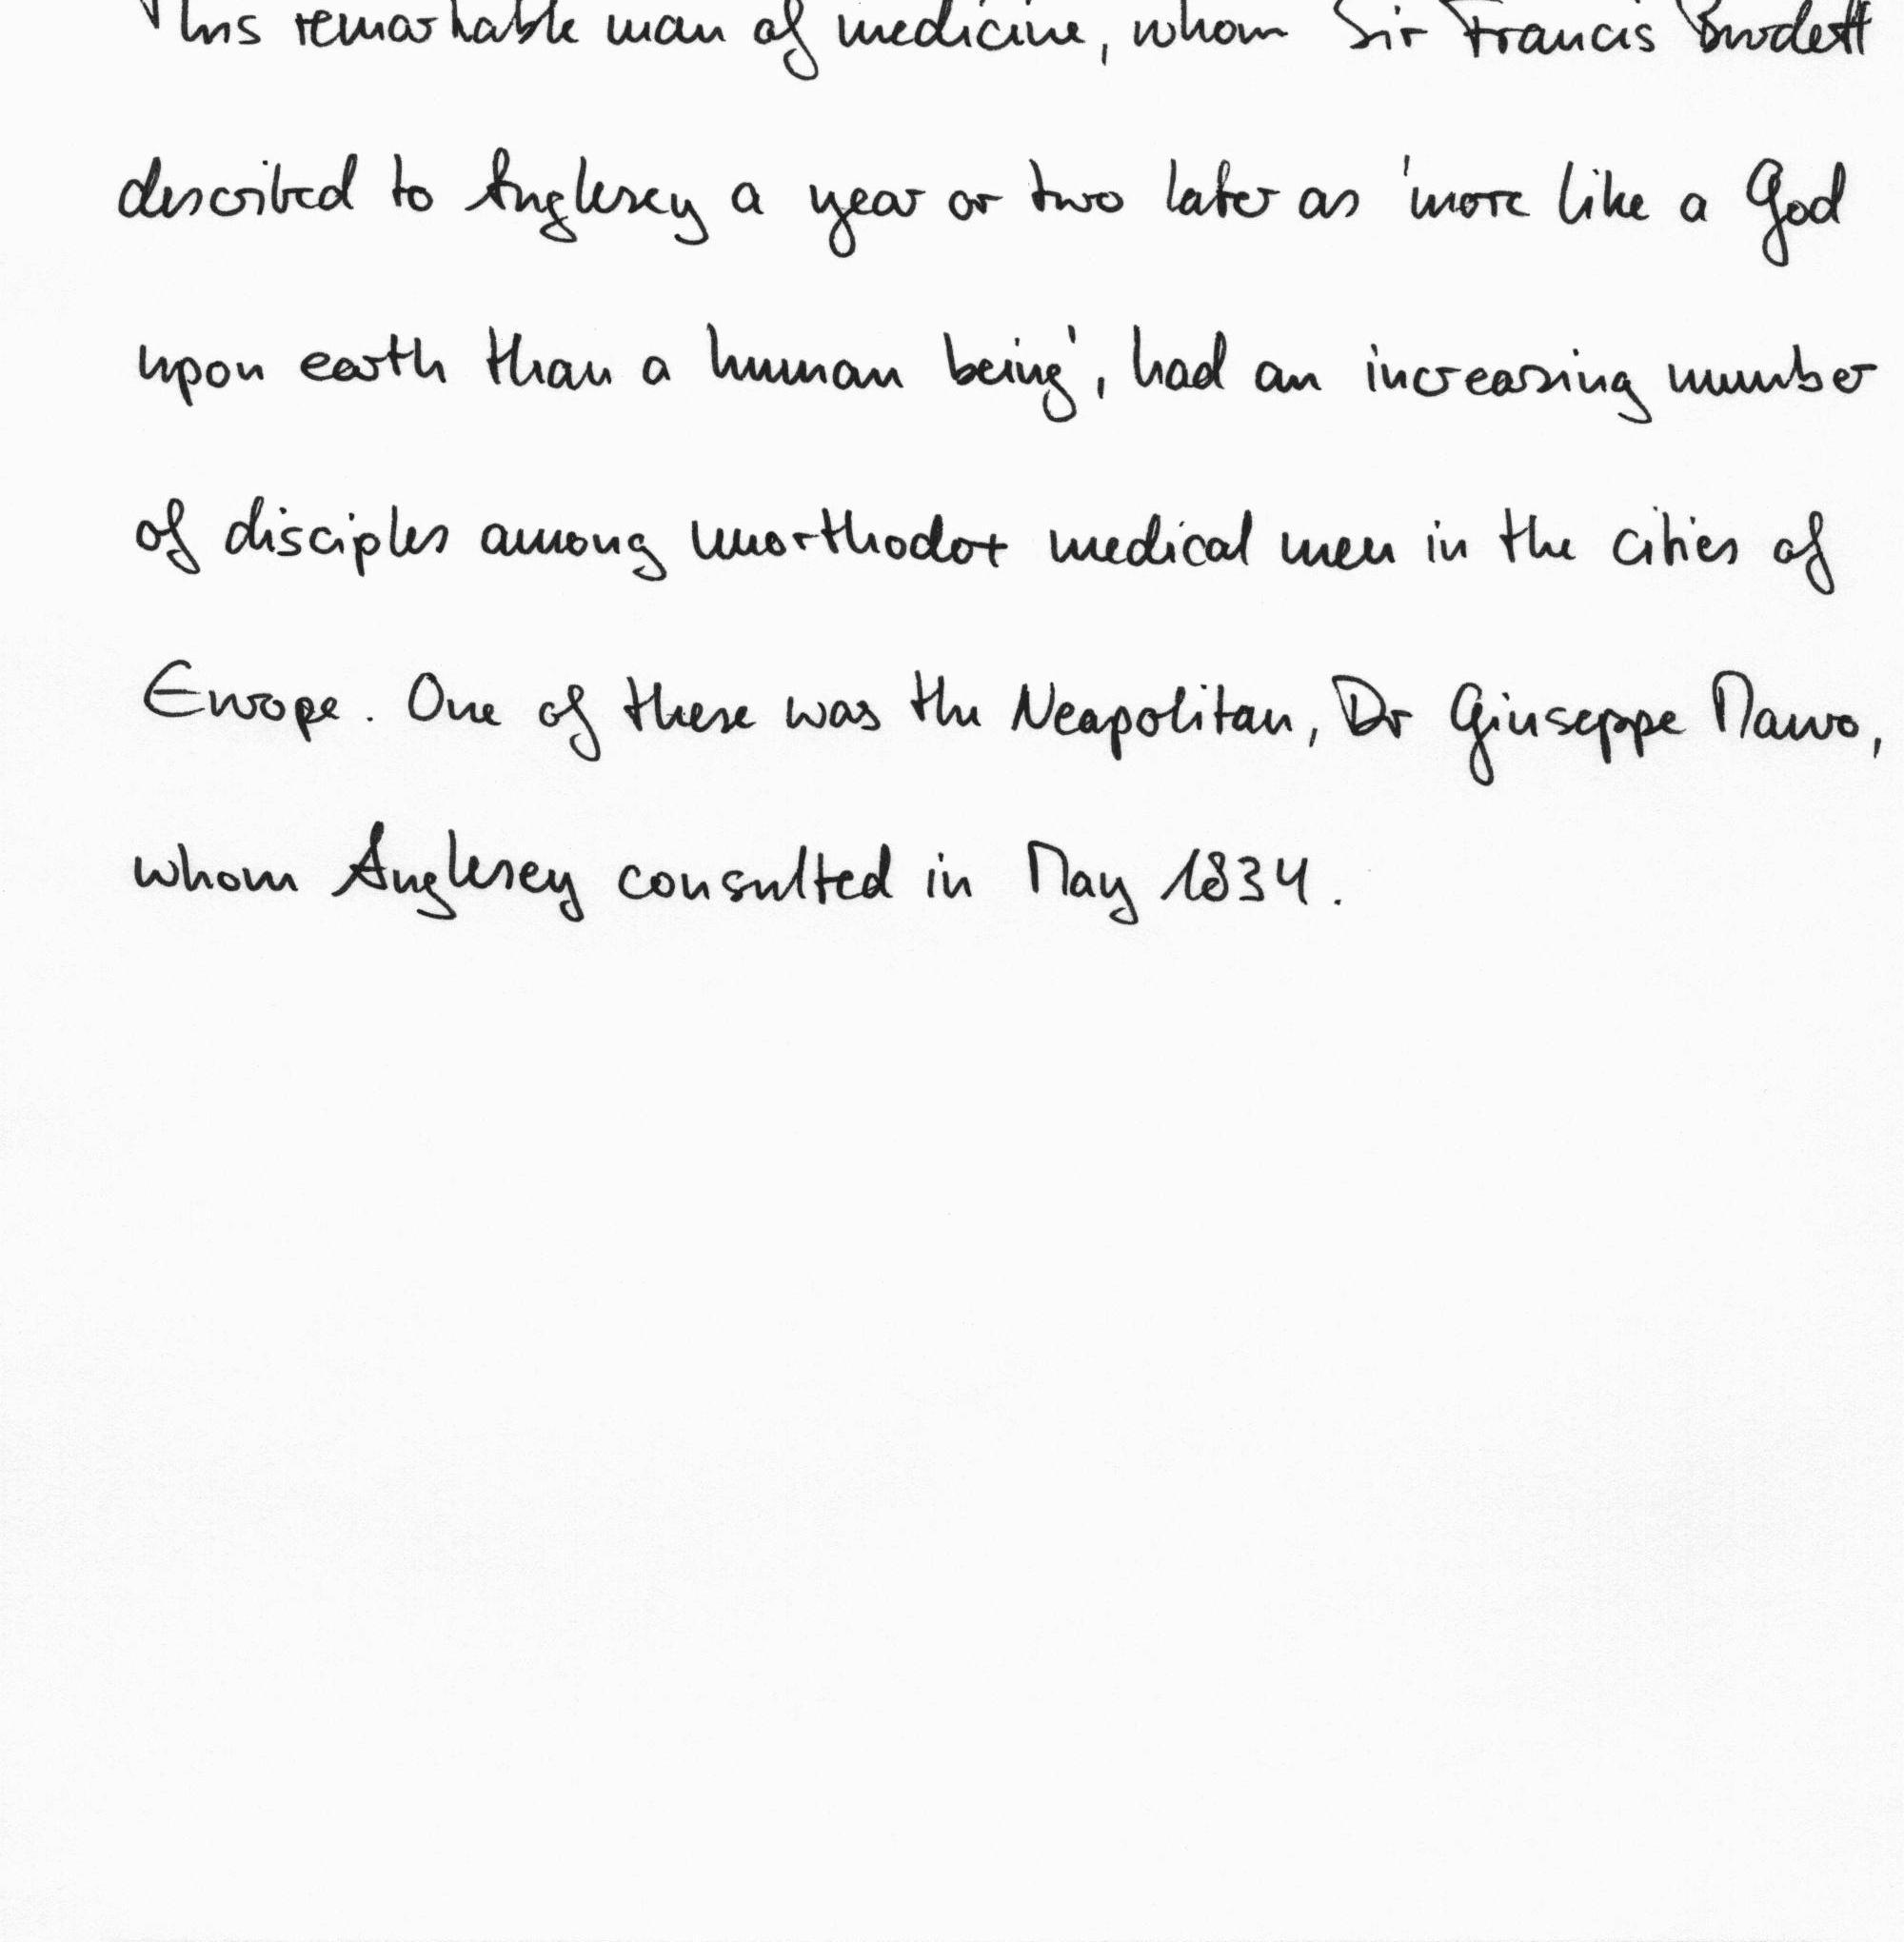 This remarkable man of medicine, whom Sir Francis Burdett
described to Anglesey a year or two later as 'more like a God
upon earth than a human being', had an increasing number
of disciples among unorthodox medical men in the cities of
Europe. One of these was the Neapolitan, Dr Giuseppe Mauro,
whom Anglesey consulted in May 1834.